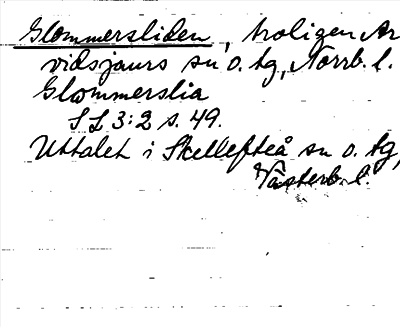 Glommersliden, troligen Ar
vidsjaurs sn o. tg, Norrb. l.
Glommerslia
SL 3:2 s. 49.
Uttalet i Skellefteå sn o. tg,
Västerb. l.